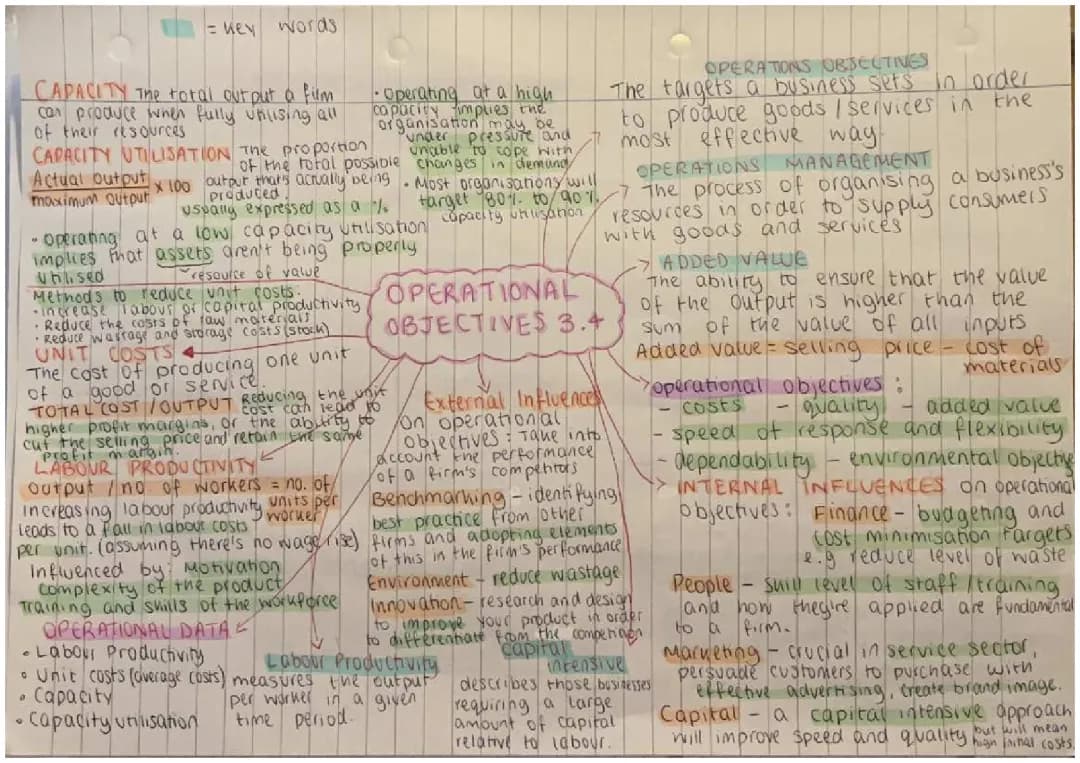 = key words
CAPACITY The total output a firm
can produce when fully utilising all
of their resources
CAPACITY UTILISATION The proportion
of the total possible
output that's actually being
produced.
Actual output
maximum output x 100
usually expressed as a %
• Operating at a low capacity utilisation
implies that assets aren't being properly
utilised
resource of value
• Operating at a high
capacity implies the
organisation may be
under pressure and
unable to cope with
changes in demand
• Most organisations will
target 80% to 90%
capacity utilisation
Methods to reduce unit costs.
• Increase labour or capital productivity
• Reduce the costs of raw materials
• Reduce wastage and storage costs (stock)
UNIT COSTS
The cost of producing one unit
of a good or service.
TOTAL COST / OUTPUT Reducing the unit
cost can lead to
higher profit margins, or the ability to
cut the selling price and retain the same
profit margin.
LABOUR PRODUCTIVITY
output / no. of workers = no. of
units per
worker
increasing labour productivity
leads to a fall in labour costs
per unit. (assuming there's no wage rise)
Influenced by: Motivation
complexity of the product
Training and skills of the workforce
OPERATIONAL DATA
• Labour Productivity
• Unit costs (average costs)
• Capacity
• Capacity utilisation
Labour Productivity
measures the output
per worker in a given
time period.
OPERATIONAL
OBJECTIVES 3.4
External Influences
on operational
objectives: Take into
account the performance
of a firm's competitors
Benchmarking - identifying
best practice from other
firms and adopting elements
of this in the firm's performance
Environment - reduce wastage
Innovation - research and design
to improve your product in order
to differentiate from the competition
capital
intensive
describes those businesses
requiring a large
amount of capital
relative to labour.
OPERATIONS OBJECTIVES
The targets a business sets in order
to produce goods / services in the
most effective way.
OPERATIONS MANAGEMENT
The process of organising a business's
resources in order to supply consumers
with goods and services
ADDED VALUE
The ability to ensure that the value
of the output is higher than the
sum of the value of all inputs
Added value = selling price - cost of
materials
operational objectives :
- costs - quality - added value
- speed of response and flexibility
- dependability - environmental objective
INTERNAL INFLUENCES on operational
objectives: Finance - budgeting and
cost minimisation targets
e.g reduce level of waste
People - skill level of staff / training
and how they're applied are fundamental
to a firm.
Marketing - crucial in service sector,
persuade customers to purchase with
effective advertising, create brand image.
Capital - a capital intensive approach
will improve speed and quality but will mean
high initial costs.